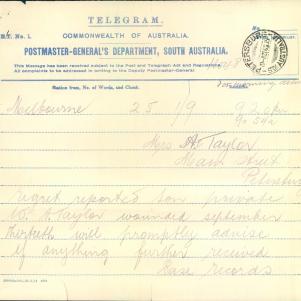 TELEGRAM.
COMMONWEALTH OF AUSTRALIA.
POSTMASTER-GENERAL'S DEPARTMENT, SOUTH AUSTRALIA.
This Message has been received subject to the Post and Telegraph Act and Regulations.
All complaints to be addressed in writing to the Deputy Postmaster-General.
Station from, No. of Words, and Check.
PETERSBURG
Melbourne 25 1/9
Mrs A Taylor
Main Street
Regret reported son private
W. A Taylor wounded september
Thirtieth will promptly advise
if anything further received
Base records